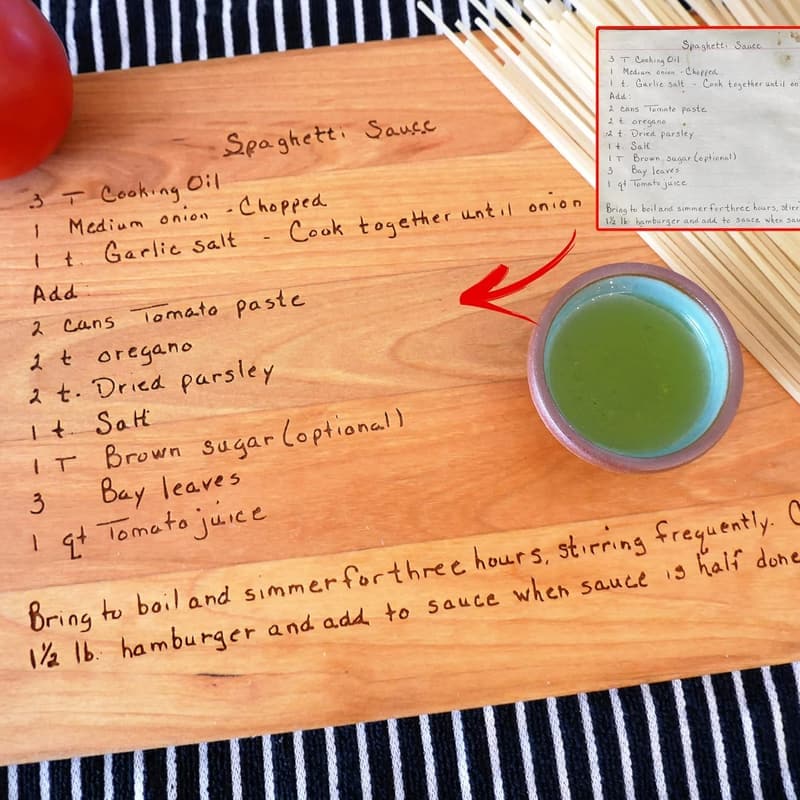 Spaghetti Sauce
3 T Cooking Oil
1 Medium onion - Chopped
1 t. Garlic salt - Cook together until onion
Add
2 cans Tomato paste
2 t oregano
2 t. Dried parsley
1 t. Salt
1 T Brown sugar (optional)
3 Bay leaves
1 qt Tomato juice
Bring to boil and simmer for three hours, stirring frequently.
1½ lb. hamburger and add to sauce when sauce is half done
Spaghetti Sauce
3 T Cooking Oil
1 Medium onion - Chopped
1 t. Garlic salt - Cook together until
Add:
2 cans Tomato paste
2 t. oregano
2 t. Dried parsley
1 t. Salt
1 T Brown sugar (optional)
3 Bay leaves
1 qt Tomato juice
Bring to boil and simmer for three hours,
1½ lb. hamburger and add to sauce when